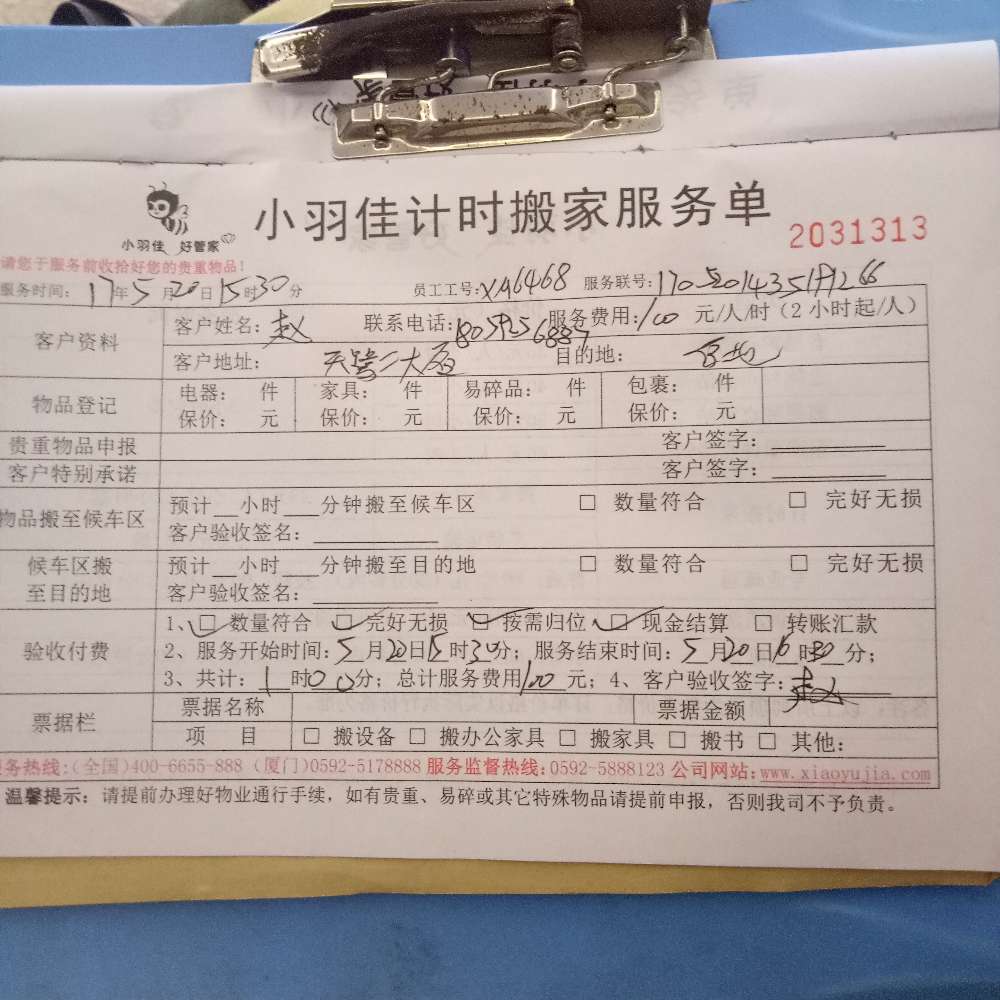 小羽佳 好管家
小羽佳计时搬家服务单
2031313
请您于服务前收拾好您的贵重物品!
服务时间: 17年5月20日15时30分 员工工号: XA6468 服务联号:
客户资料
客户姓名: 赵 联系电话: 服务费用: 100 元/人/时 (2小时起/人)
客户地址: 大厦 目的地:
物品登记
电器: 件 家具: 件 易碎品: 件 包裹: 件
保价: 元 保价: 元 保价: 元 保价: 元
贵重物品申报 客户签字:
客户特别承诺 客户签字:
物品搬至候车区
预计__小时___分钟搬至候车区 □ 数量符合 □ 完好无损
客户验收签名:
候车区搬至目的地
预计__小时___分钟搬至目的地 □ 数量符合 □ 完好无损
客户验收签名:
验收付费
1、☑ 数量符合 ☑ 完好无损 ☑ 按需归位 ☑ 现金结算 □ 转账汇款
2、服务开始时间: 5月20日15时30分; 服务结束时间: 5月20日16时30分;
3、共计: 1时00分; 总计服务费用100元; 4、客户验收签字: 赵
票据栏
票据名称 票据金额
项 目 □ 搬设备 □ 搬办公家具 □ 搬家具 □ 搬书 □ 其他:
服务热线:(全国)400-6655-888 (厦门)0592-5178888 服务监督热线:0592-5888123 公司网站:www.xiaoyujia.com
温馨提示: 请提前办理好物业通行手续,如有贵重、易碎或其它特殊物品请提前申报,否则我司不予负责。